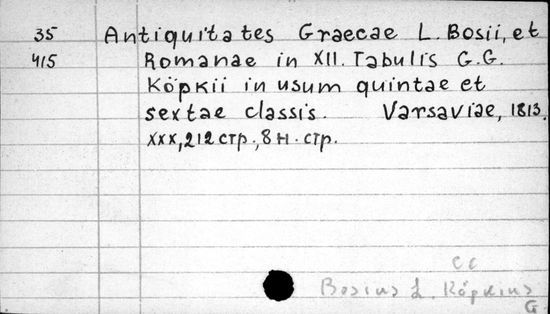 35 Antiquitates Graecae L. Bosii, et
415 Romanae in XII. Tabulis G. G.
Köpkii in usum quintae et
sextae classis. Varsaviae, 1813.
XXX, 212 стр., 8 н. стр.
CC
Bosius L. Köpkius
G